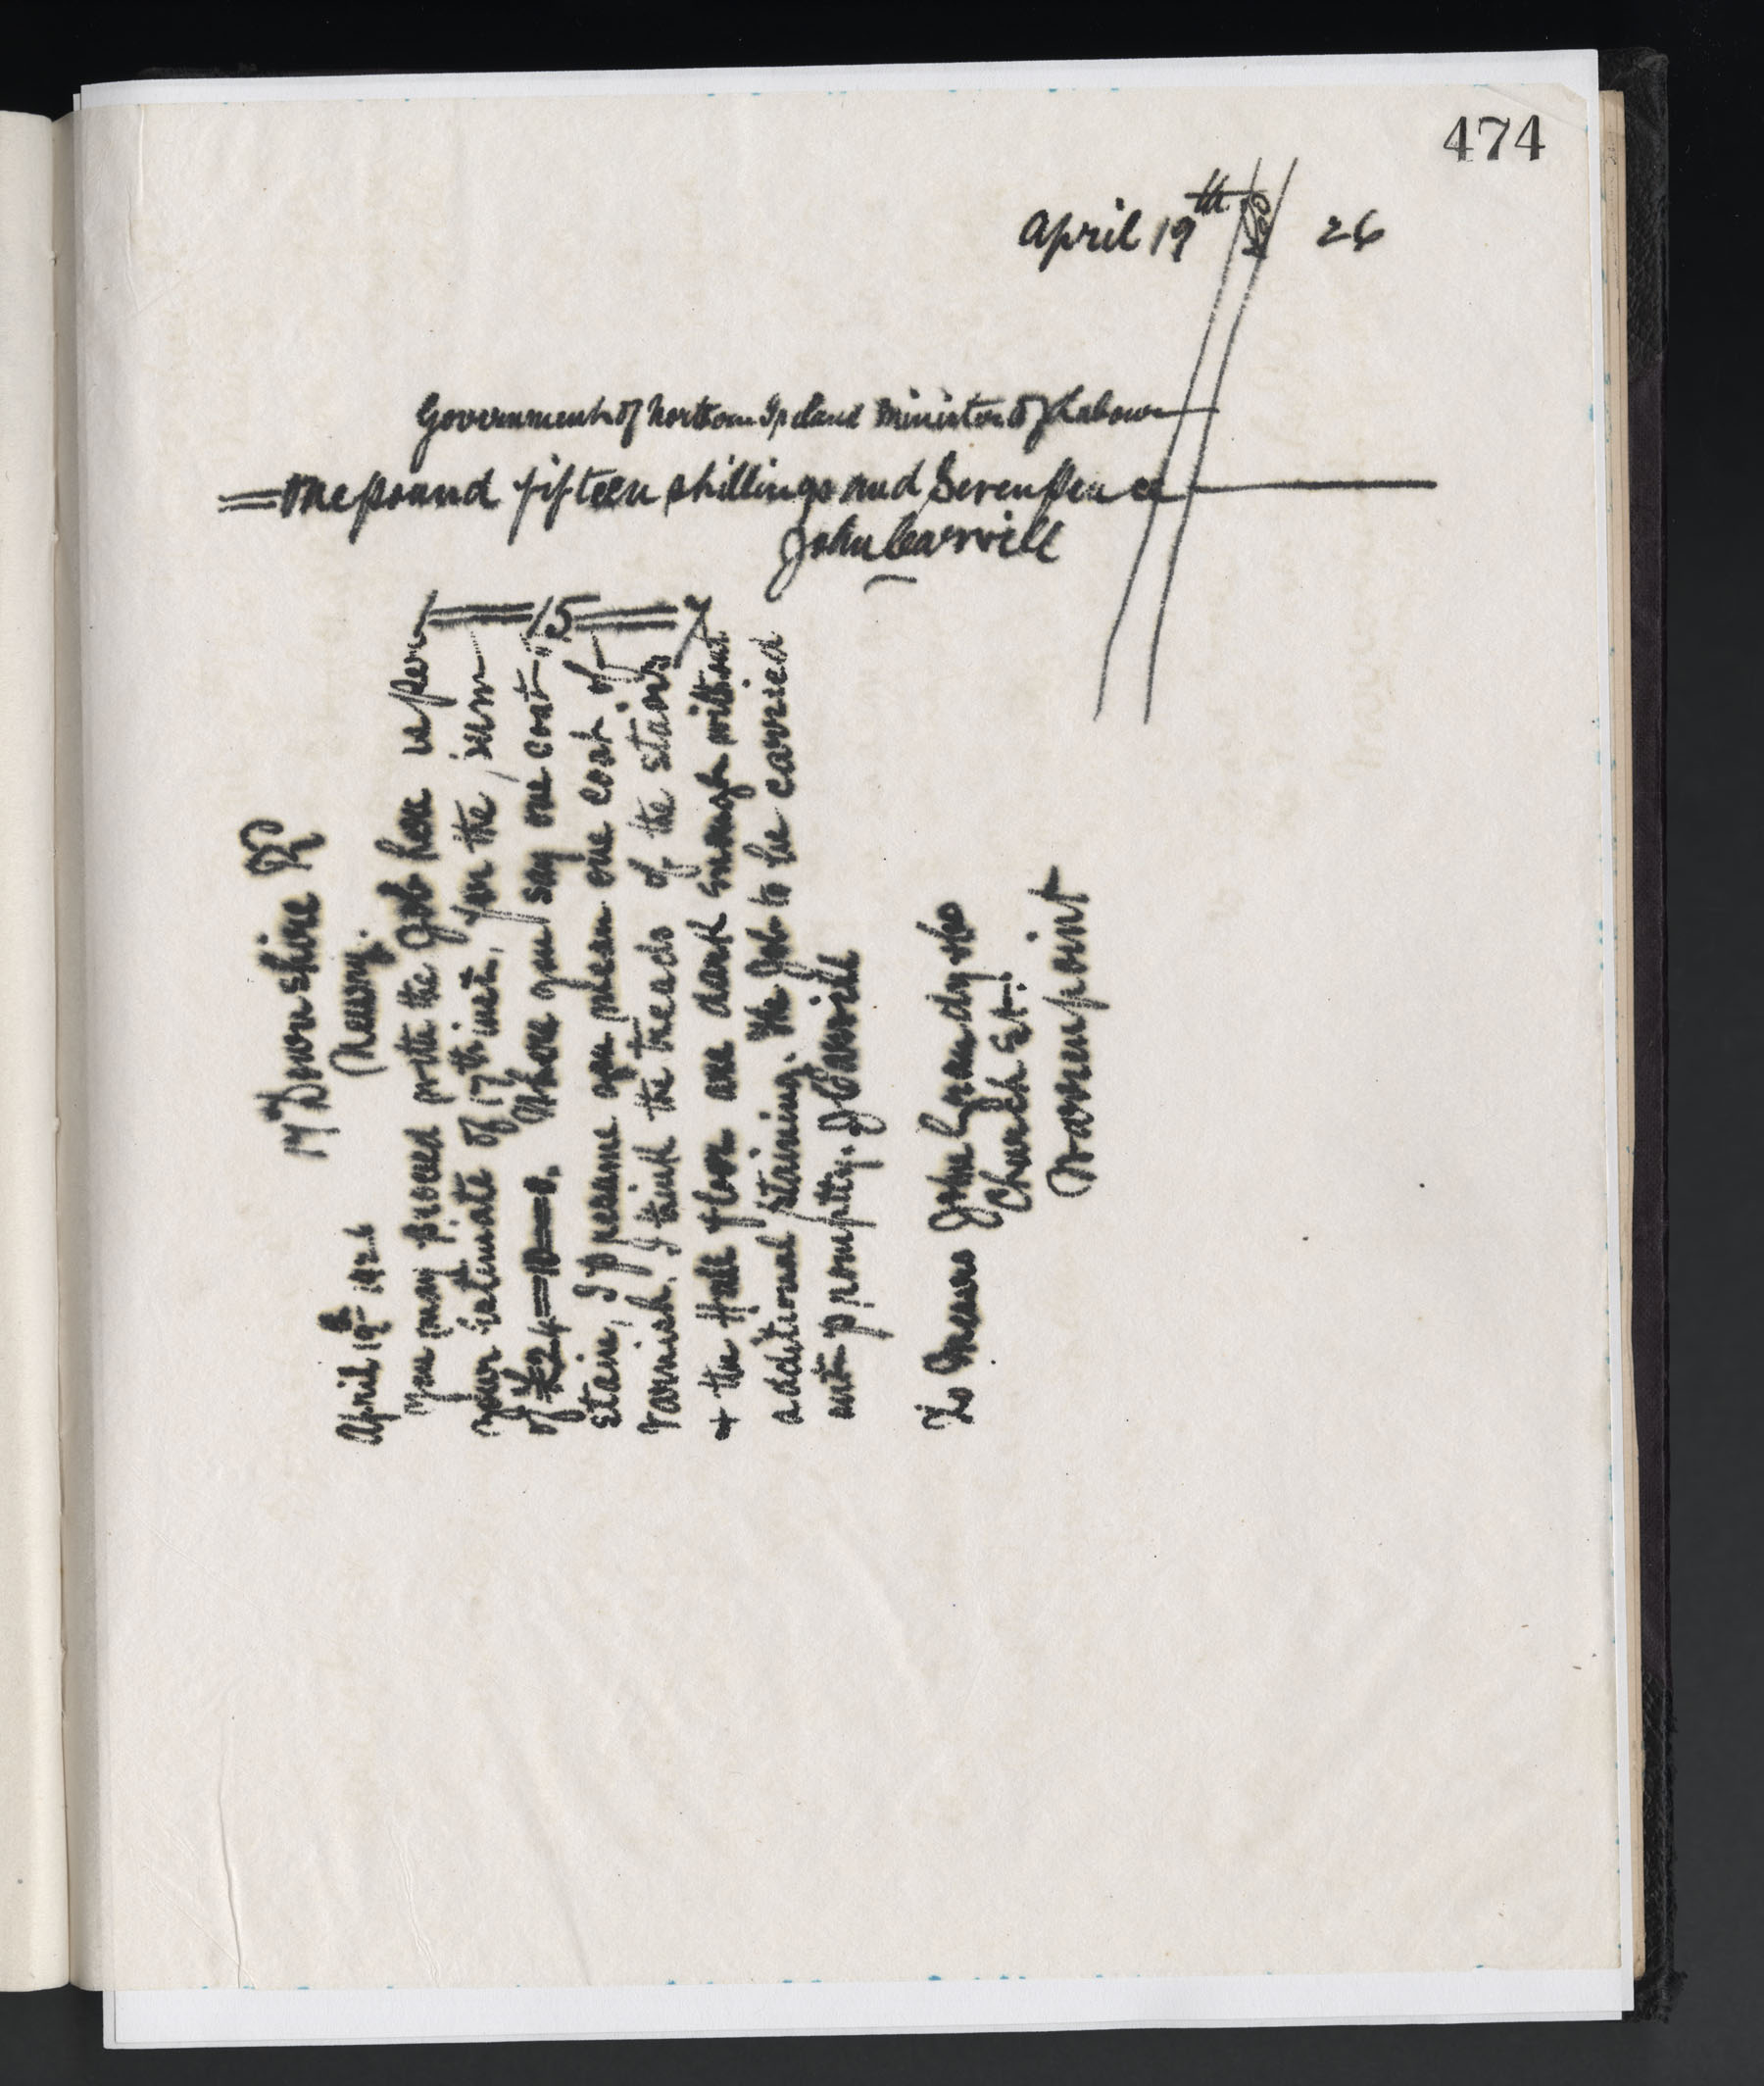 474
April 19th 26
Government of Northern Ireland Minister of Labour
One pound fifteen shillings and Sevenpence
John Carvill
1 = 15 = 7
17 Downshire Rd
Newry.
April 19th 1926
You may proceed with the job here as per
your Estimate of 17th inst, for the sum
of £24=10=0. Where you say one coat "
Stain, I presume you mean one coat of
Varnish. I think the treads of the stairs
+ the Hall floor are dark enough without
additional staining. The Job to be carried
out promptly. J Carvill
To Messrs John Grandy &
Church St.
Warrenpoint